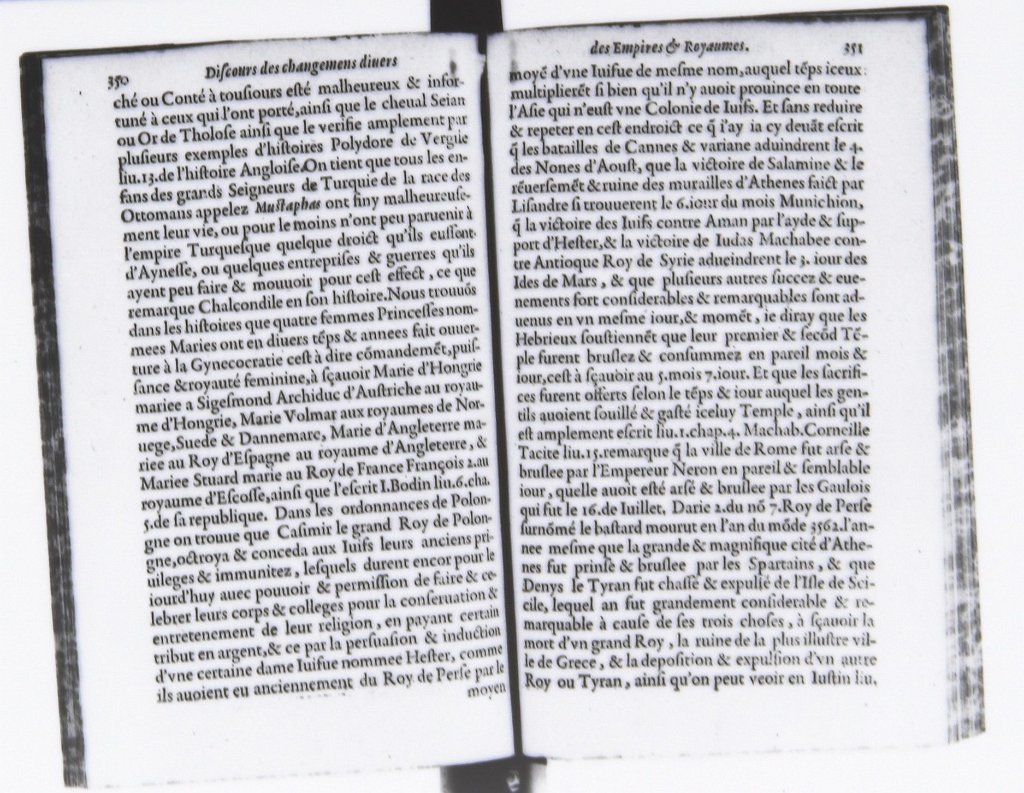 350 Diſcours des changemens diuers
ché ou Conté à touſiours eſté malheureux & infor-
tuné à ceux qui l'ont porté, ainſi que le cheual Seian
ou Or de Tholoſe ainſi que le verifie amplement par
pluſieurs exemples d'hiſtoires Polydore de Vergile
liu.13.de l'hiſtoire Angloiſe.On tient que tous les en-
fans des grands Seigneurs de Turquie de la race des
Ottomans appelez Muſtaphas ont finy malheureuſe-
ment leur vie, ou pour le moins n'ont peu paruenir à
l'empire Turqueſque quelque droict qu'ils euſſent
d'Ayneſſe, ou quelques entrepriſes & guerres qu'ils
ayent peu faire & mouuoir pour ceſt effect, ce que
remarque Chalcondile en ſon hiſtoire.Nous trouuõs
dans les hiſtoires que quatre femmes Princeſſes nom-
mees Maries ont en diuers tẽps & annees fait ouuer-
ture à la Gynecocratie ceſt à dire cõmandemẽt,puiſ-
ſance & royauté feminine,à ſçauoir Marie d'Hongrie
mariee a Sigeſmond Archiduc d'Auſtriche au royau-
me d'Hongrie, Marie Volmar aux royaumes de Nor-
uege,Suede & Dannemarc, Marie d'Angleterre ma-
riee au Roy d'Eſpagne au royaume d'Angleterre, &
Mariee Stuard marie au Roy de France François 2.au
royaume d'Eſcoſſe,ainſi que l'eſcrit I.Bodin liu.6.cha.
5.de ſa republique. Dans les ordonnances de Polon-
gne on trouue que Caſimir le grand Roy de Polon-
gne,octroya & conceda aux Iuifs leurs anciens pri-
uileges & immunitez, leſquels durent encor pour le
iourd'huy auec pouuoir & permiſſion de faire & ce-
lebrer leurs corps & colleges pour la conſeruation &
entretenement de leur religion, en payant certain
tribut en argent,& ce par la perſuaſion & induction
d'vne certaine dame Iuifue nommee Heſter, comme
ils auoient eu anciennement du Roy de Perſe par le
moyen
des Empires & Royaumes. 351
moyẽ d'vne Iuifue de meſme nom,auquel tẽps iceux
multiplierẽt ſi bien qu'il n'y auoit prouince en toute
l'Aſie qui n'euſt vne Colonie de Iuifs. Et ſans reduire
& repeter en ceſt endroict ce q̃ i'ay ia cy deuãt eſcrit
q̃ les batailles de Cannes & variane aduindrent le 4.
des Nones d'Aouſt, que la victoire de Salamine & le
rẽuerſemẽt & ruine des murailles d'Athenes faict par
Liſandre ſi trouuerent le 6.iour du mois Munichion,
q̃ la victoire des Iuifs contre Aman par l'ayde & ſup-
port d'Heſter,& la victoire de Iudas Machabee con-
tre Antioque Roy de Syrie adueindrent le 3. iour des
Ides de Mars, & que pluſieurs autres ſuccez & eue-
nements fort conſiderables & remarquables ſont ad-
uenus en vn meſme iour,& momẽt, ie diray que les
Hebrieux ſouſtiennẽt que leur premier & ſecõd Tẽ-
ple furent bruſlez & conſummez en pareil mois &
iour,ceſt à ſçauoir au 5.mois 7.iour. Et que les ſacrifi-
ces furent offerts ſelon le tẽps & iour auquel les gen-
tils auoient ſouillé & gaſté iceluy Temple, ainſi qu'il
eſt amplement eſcrit liu.1.chap.4. Machab.Corneille
Tacite liu.15.remarque q̃ la ville de Rome fut arſe &
bruſlee par l'Empereur Neron en pareil & ſemblable
iour, quelle auoit eſté arſé & bruſlee par les Gaulois
qui fut le 16.de Iuillet. Darie 2.du nõ 7.Roy de Perſe
ſurnõmé le baſtard mourut en l'an du mõde 3562.l'an-
nee meſme que la grande & magnifique cité d'Athe-
nes fut prinſe & bruſlee par les Spartains, & que
Denys le Tyran fut chaſſé & expulſé de l'Iſle de Sci-
cile, lequel an fut grandement conſiderable & re-
marquable à cauſe de ſes trois choſes, à ſçauoir la
mort d'vn grand Roy, la ruine de la plus illuſtre vil-
le de Grece, & la depoſition & expulſion d'vn autre
Roy ou Tyran, ainſi qu'on peut veoir en Iuſtin liu.